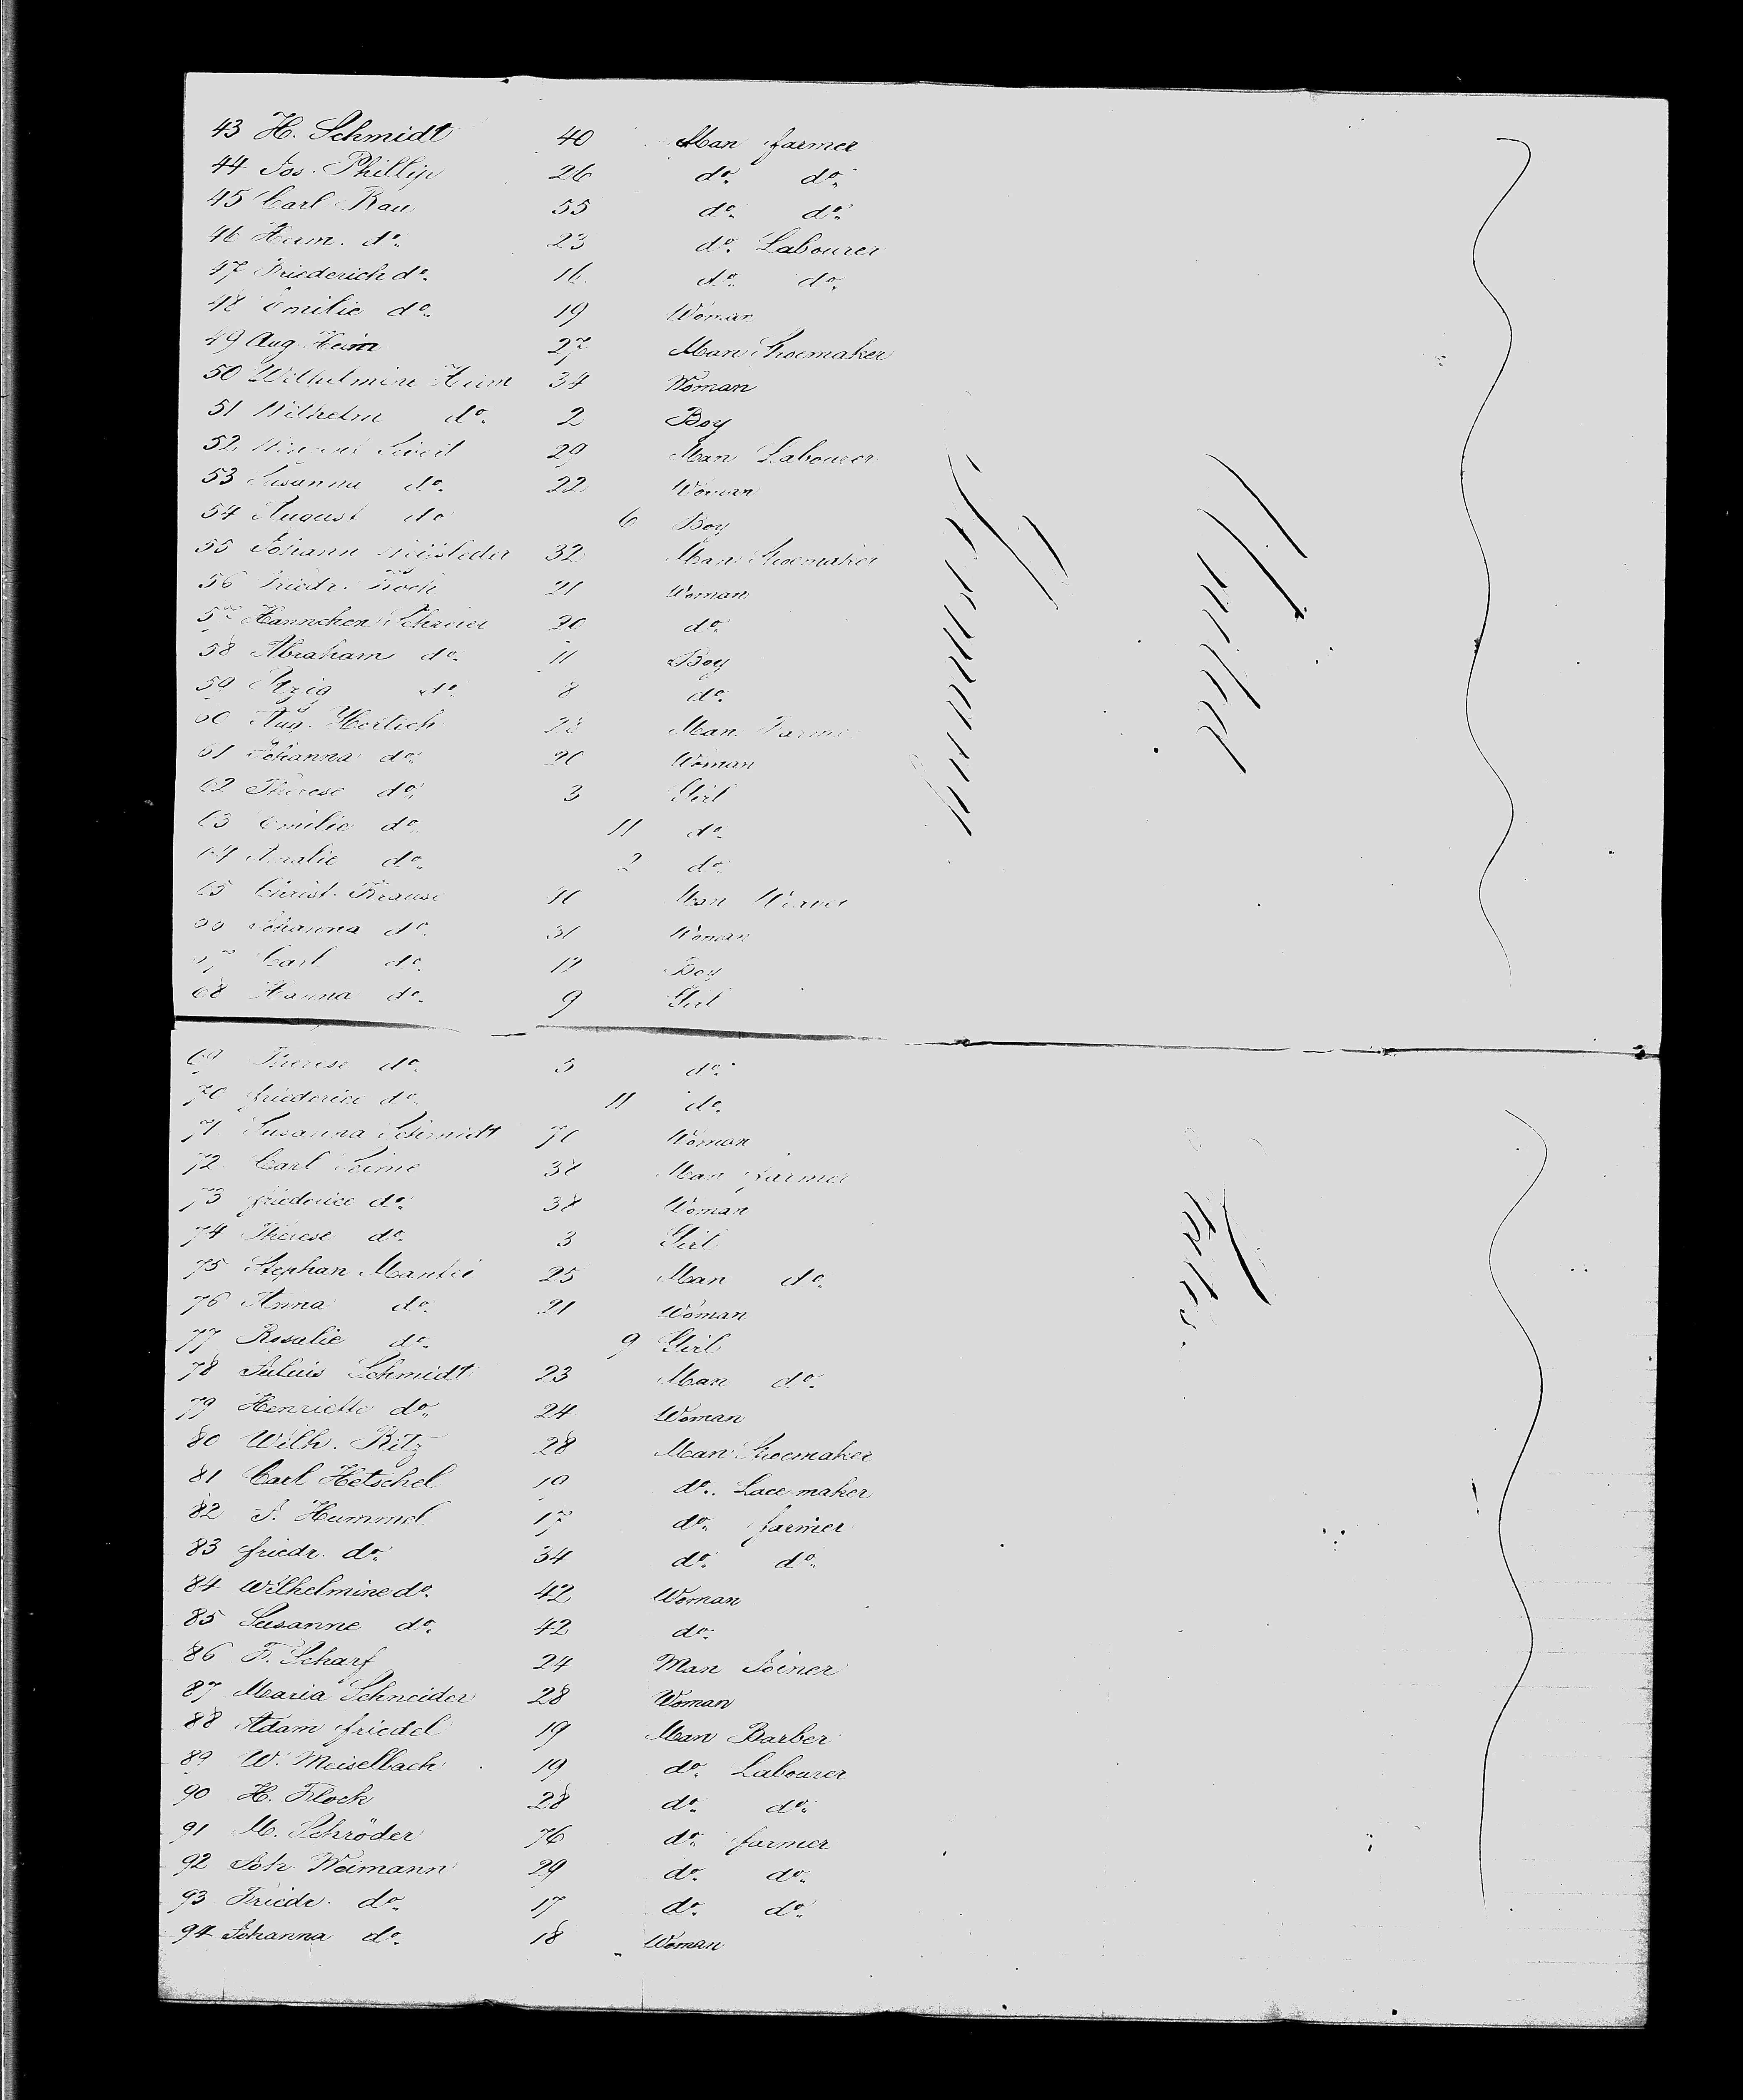 43 H. Schmidt 40 Man farmer
44 Jos. Phillip 26 do. do.
45 Carl Rau 55 do. do.
46 Herm. do. 23 do. Labourer
47 Friederich do. 16 do. do.
48 Emilie do. 19 Woman
49 Aug. Heim 27 Man Shoemaker
50 Wilhelmine Heim 34 Woman
51 Wilhelm do. 2 Boy
52 29 Man Labourer
53 Susanna do. 22 Woman
54 August do 6 Boy
55 Johann 32 Man Shoemaker
56 Friedr. Koch 21 Woman
57 Hannchen Schreier 20 do.
58 Abraham do. 11 Boy
59 Itzig do. 8 do.
60 Aug. Herlich 28 Man Farmer
61 Johanna do. 20 Woman
62 Therese do. 3 Girl
63 Emilie do. 11 do.
64 Amalie do. 2 do.
65 Christ. Krause Man Weaver
66 Johanna do. 31 Woman
67 Carl do. 12 Boy
68 Hanna do. 9 Girl
69 Therese do. 5 do.
70 friederice do. 11 do.
71 Susanna Schmidt 70 Woman
72 Carl 38 Man farmer
73 friederice do. 38 Woman
74 Therese do. 3 Girl
75 Stephan Mantei 25 Man do.
76 Anna do. 21 Woman
77 Rosalie do. 9 Girl
78 Julius Schmidt 23 Man do.
79 Henriette do. 24 Woman
80 Wilh. Ritz 28 Man Shoemaker
81 Carl Hetschel 19 do. Lace-maker
82 J. Hummel 17 do. farmer
83 friedr. do. 34 do. do.
84 Wilhelmine do. 42 Woman
85 Susanne do. 42 do.
86 F. Scharf 24 Man Joiner
87 Maria Schneider 28 Woman
88 Adam friedel 19 Man Barber
89 W. Meiselbach 19 do. Labourer
90 H. Flock 28 do. do.
91 M. Schröder 76 do. farmer
92 Joh. Weimann 29 do. do.
93 Friedr. do. 17 do. do.
94 Johanna do. 18 Woman
Germany